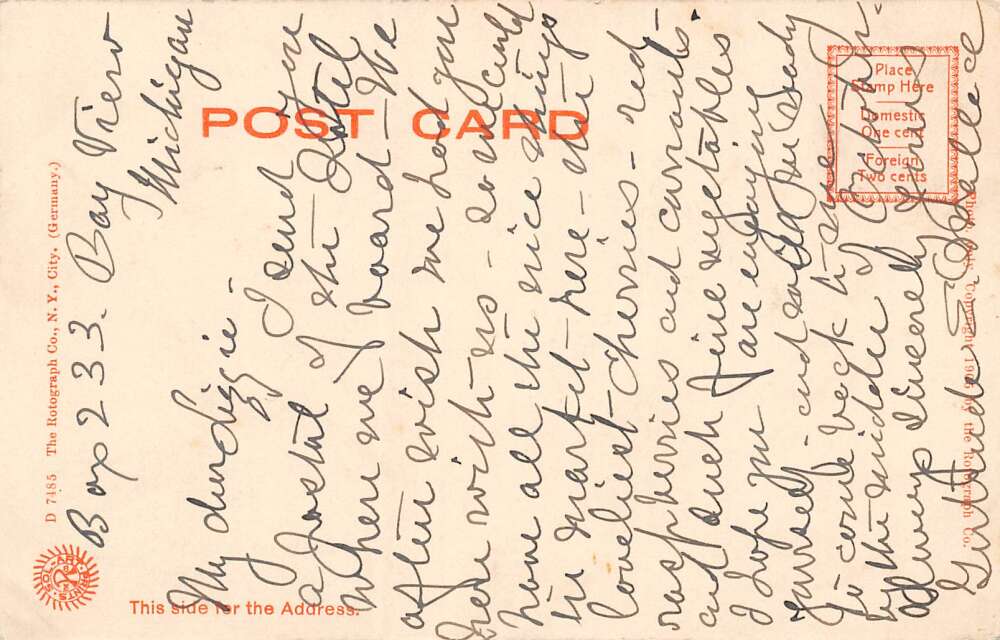 POST CARD
Place
Stamp Here
Domestic
One cent
Foreign
Two cents
D 7485 The Rotograph Co., N. Y., City. (Germany.)
SOL-ART PRINTS
This side for the Address.
Copyright 1905 by the Rotograph Co.
Box 233. Bay View
Michigan
My dear Lizzie-
I send you
a postal of the Hotel
where we board- We
often wish we had you
here with us- so we could
have all the nice things
in market- here- the
loveliest- cherries- red
raspberries and currants-
and such fine vegetables
I hope you are enjoying
yourself- and
to come back to
by the middle of
always Sincerely yours
Gertrude